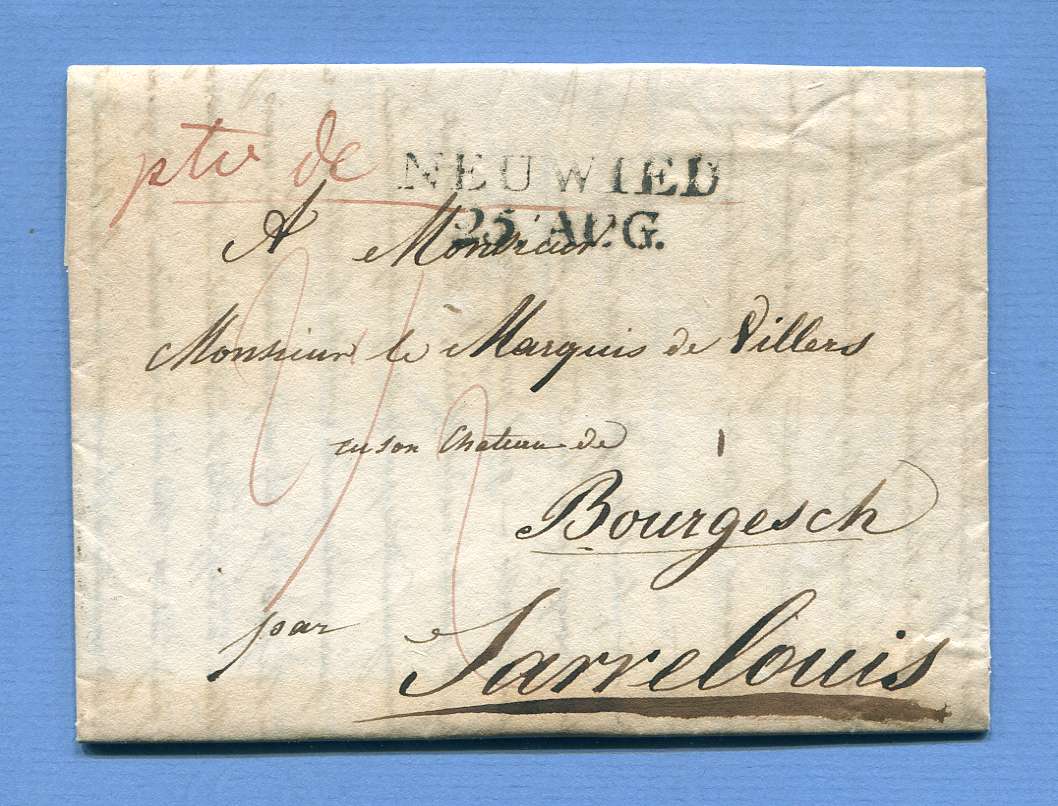 de NEUWIED
25 AUG.
A Monsieur
Monsieur le Marquis de Villers
en son Chateau de
Bourgesch
par Sarrelouis